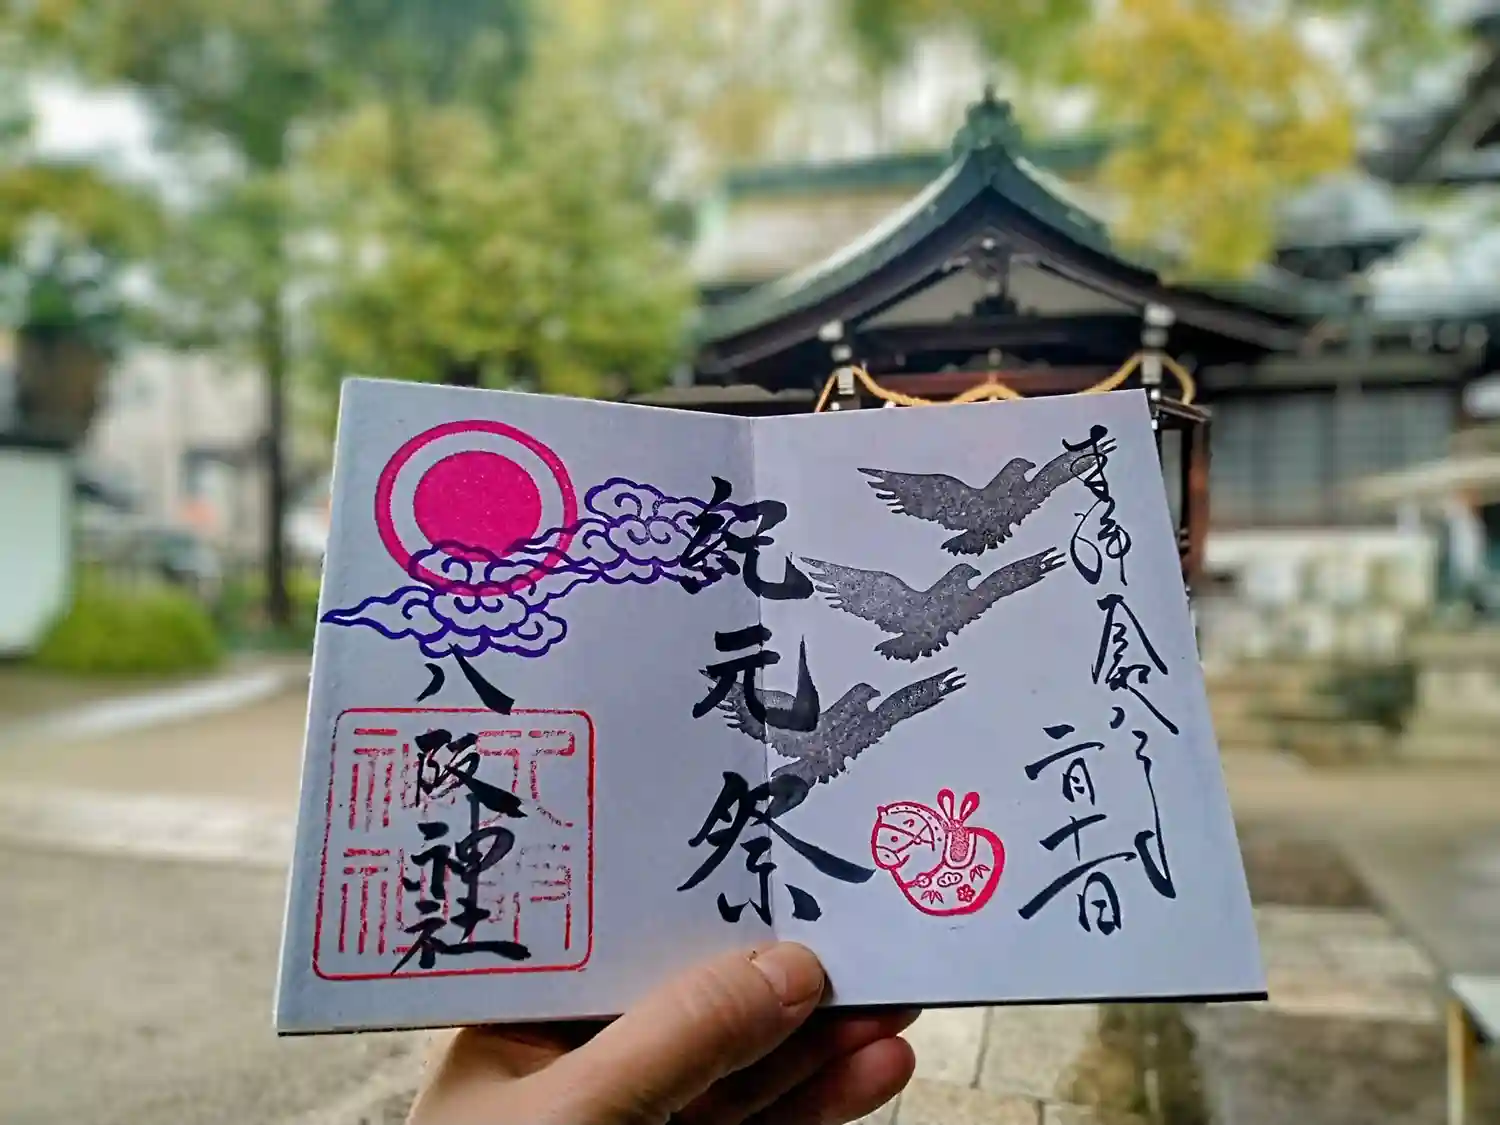 奉拝 令和八年
二月十一日
紀元祭
八阪神社